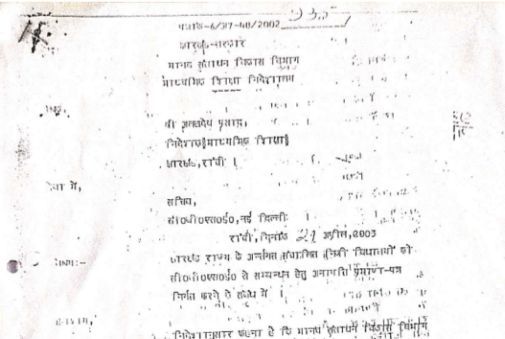 पत्रांक-6/विO7-40/2002 235
झारखंड-सरकार
मानव संसाधन विकास विभाग
माध्यमिक शिक्षा निदेशालय
प्रेषक,
श्री प्रसाद,
निदेशक माध्यमिक शिक्षा
झारखंड, रांची ।
सेवा में,
सचिव,
सी०बी०एस०ई०, नई दिल्ली
रांची, दिनांक 29 अप्रैल, 2003
विषय:- झारखंड राज्य के अन्तर्गत संचालित निजी विद्यालयों को
सी०बी०एस०ई० से सम्बन्धन हेतु अनापत्ति प्रमाण-पत्र
निर्गत करने के संबंध में ।
महाशय,
निदेशानुसार कहना है कि मानव संसाधन विकास विभाग